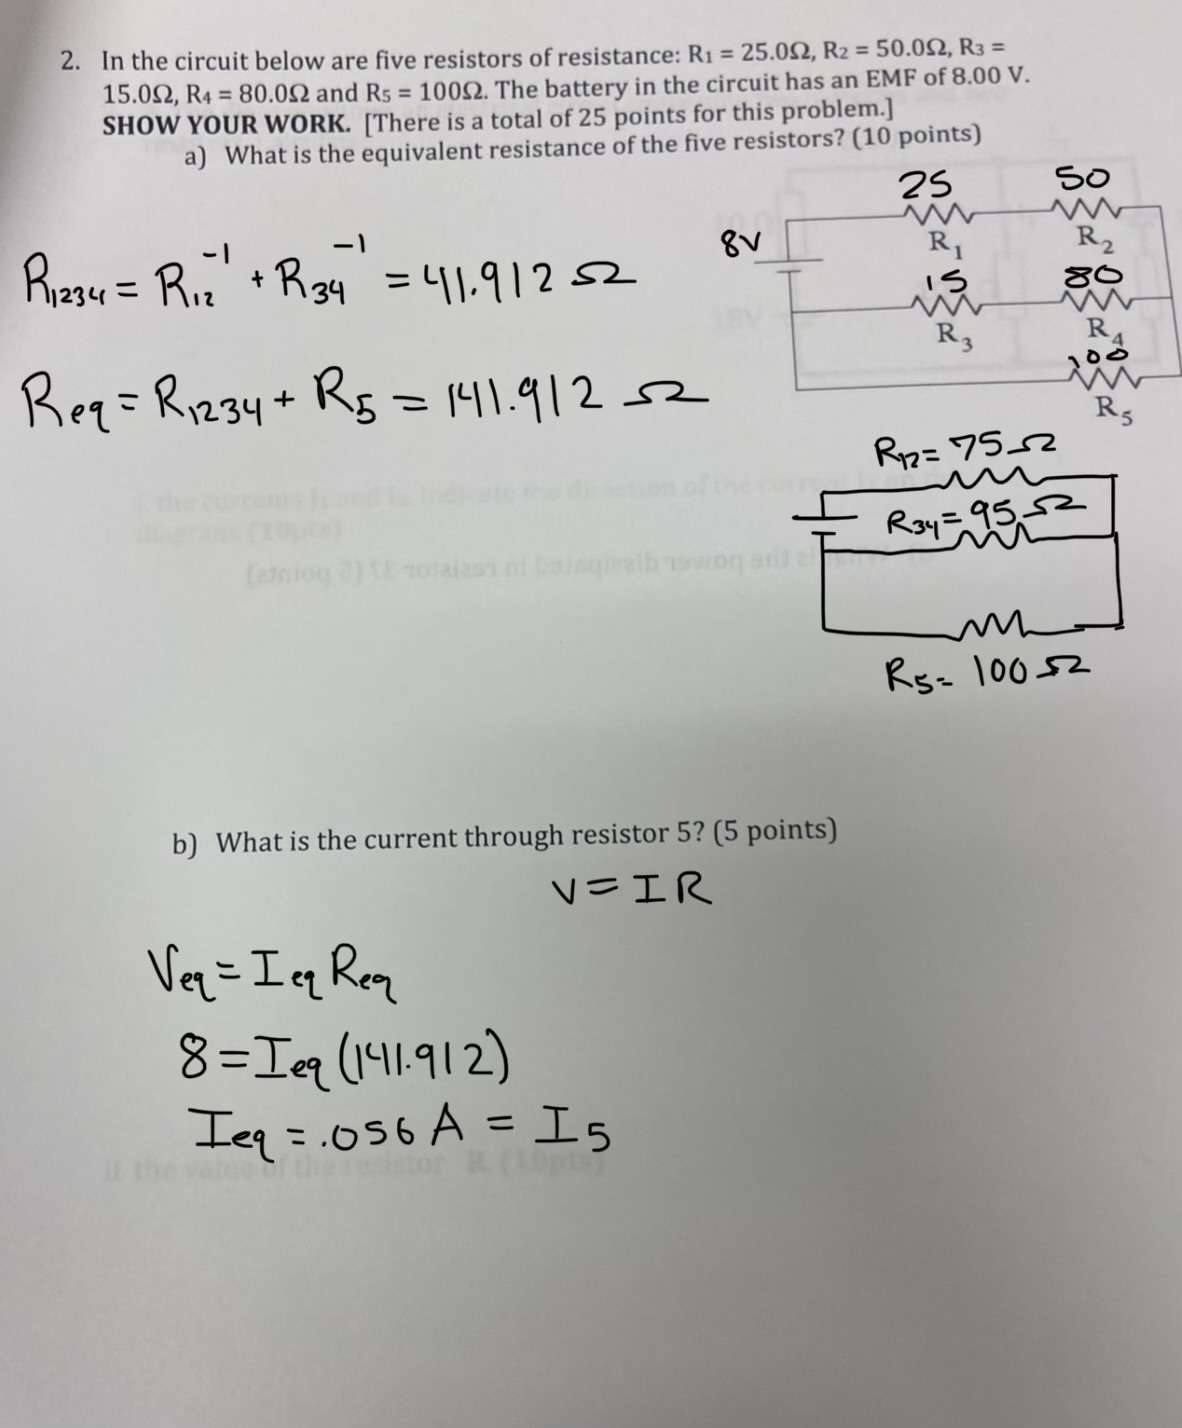 2. In the circuit below are five resistors of resistance: R1 = 25.0Ω, R2 = 50.0Ω, R3 =
15.0Ω, R4 = 80.0Ω and R5 = 100Ω. The battery in the circuit has an EMF of 8.00 V.
SHOW YOUR WORK. [There is a total of 25 points for this problem.]
a) What is the equivalent resistance of the five resistors? (10 points)
25 50
8V R₁ R₂
15 80
R₃ R₄
100
R₅
R₁₂₃₄ = R₁₂⁻¹ + R₃₄⁻¹ = 41.912 Ω
Req = R₁₂₃₄ + R₅ = 141.912 Ω
R₁₂ = 75 Ω
R₃₄ = 95 Ω
R₅ = 100 Ω
(5 points)
b) What is the current through resistor 5? (5 points)
V = IR
Veq = Ieq Req
8 = Ieq (141.912)
Ieq = .056 A = I₅